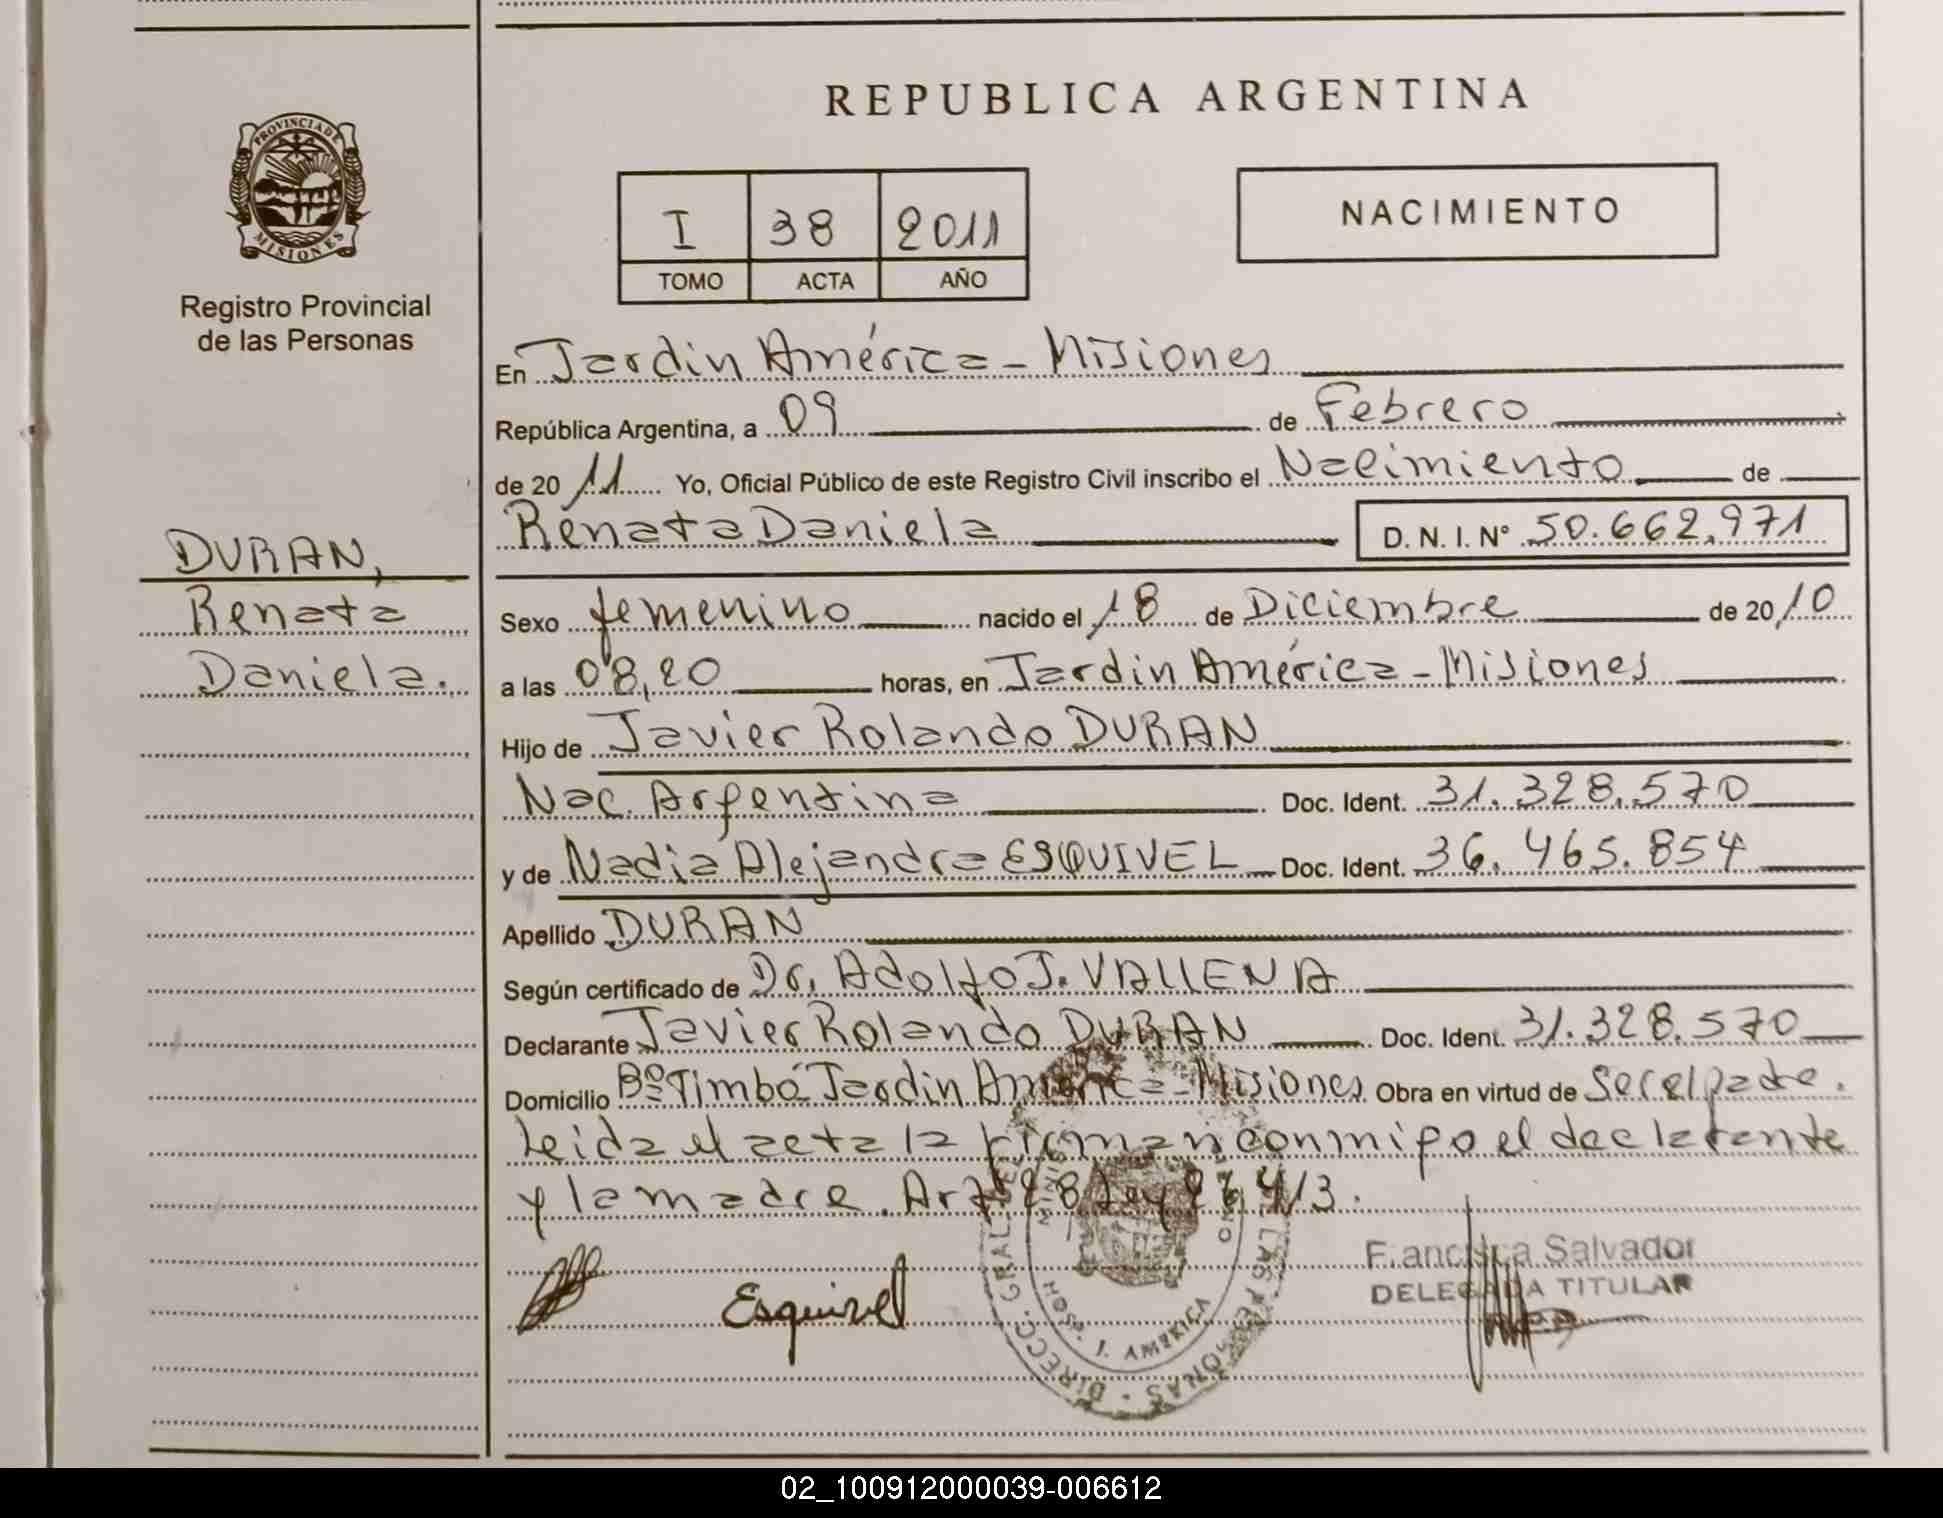 REPUBLICA ARGENTINA
PROVINCIA DE
MISIONES
Registro Provincial
de las Personas
I 38 2011
TOMO ACTA AÑO
NACIMIENTO
En Jardin América - Misiones
República Argentina, a 09 de Febrero
de 2011 Yo, Oficial Público de este Registro Civil inscribo el Nacimiento de
Renata Daniela D. N. I. N° 50.662.971
DURAN,
Renata
Daniela.
Sexo femenino nacido el 18 de Diciembre de 2010
a las 08,20 horas, en Jardin América - Misiones
Hijo de Javier Rolando DURAN
Nac. Argentina Doc. Ident. 31.328.570
y de Nadia Alejandra ESQUIVEL Doc. Ident. 36.465.854
Apellido DURAN
Según certificado de Dr. Adolfo J. VALLENA
Declarante Javier Rolando DURAN Doc. Ident. 31.328.570
Domicilio Bº Timbó Jardin América - Misiones Obra en virtud de Ser el padre.
Leida el acta la firman conmigo el declarante
y la madre. Art 28 Ley 26413.
Esquivel
Francisca Salvador
DELEGADA TITULAR
DIRECC. GRAL. DE LAS PERSONAS
HOSP. J. AMERICA
02_100912000039-006612